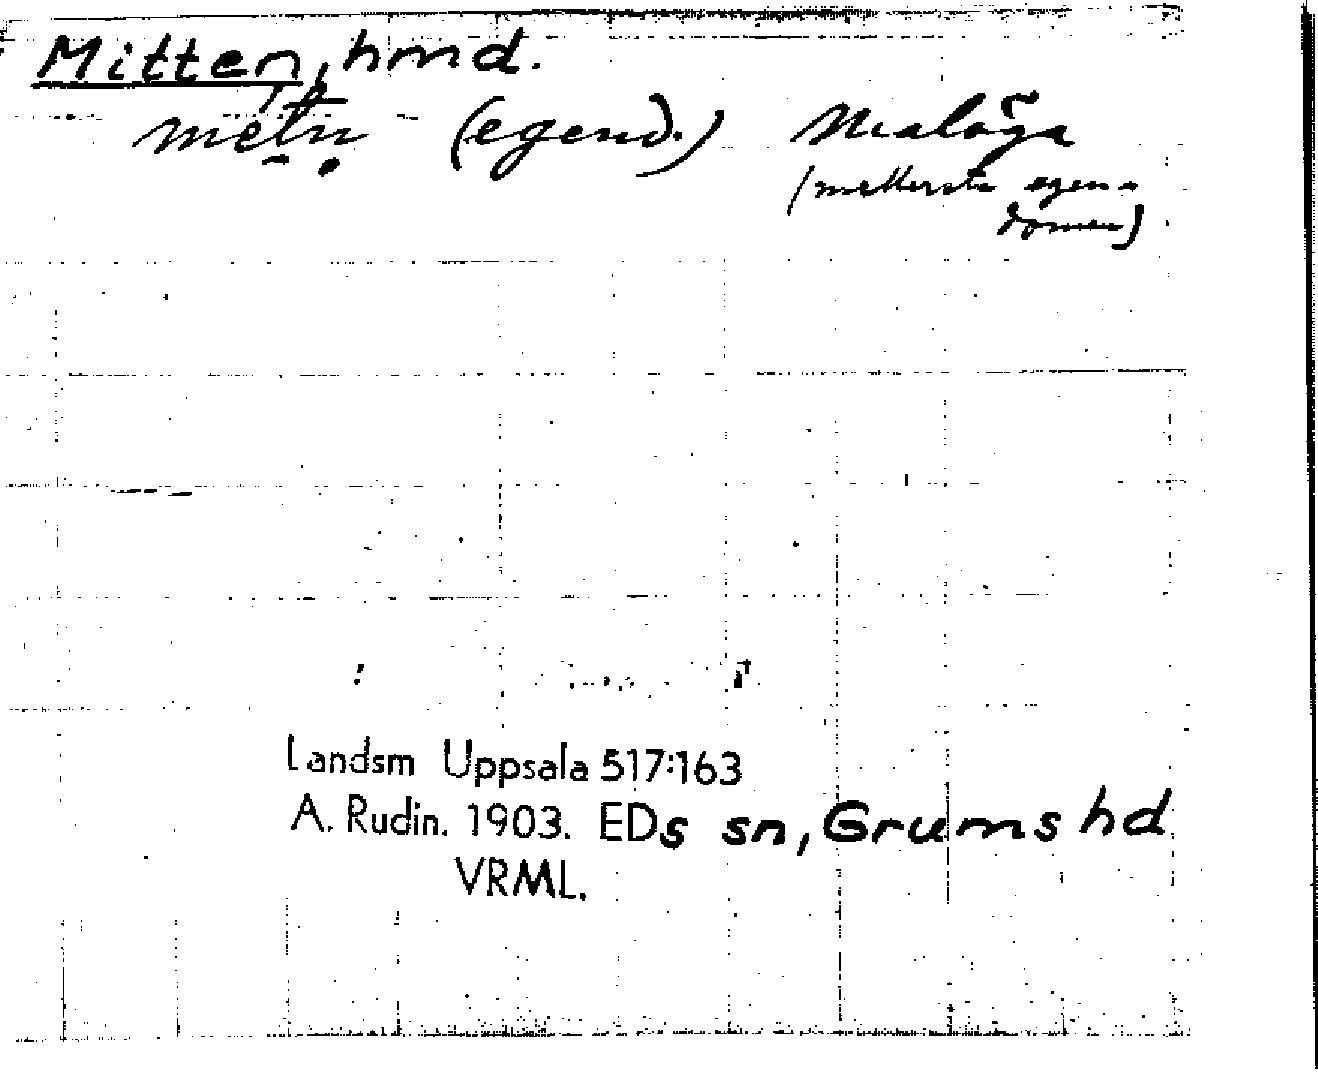 Mitten, hmd.
mętṇ (egend.) Malöga
(mellersta egen-
domen)
Landsm Uppsala 517:163
A. Rudin. 1903. EDs sn, Grums hd
VRML.